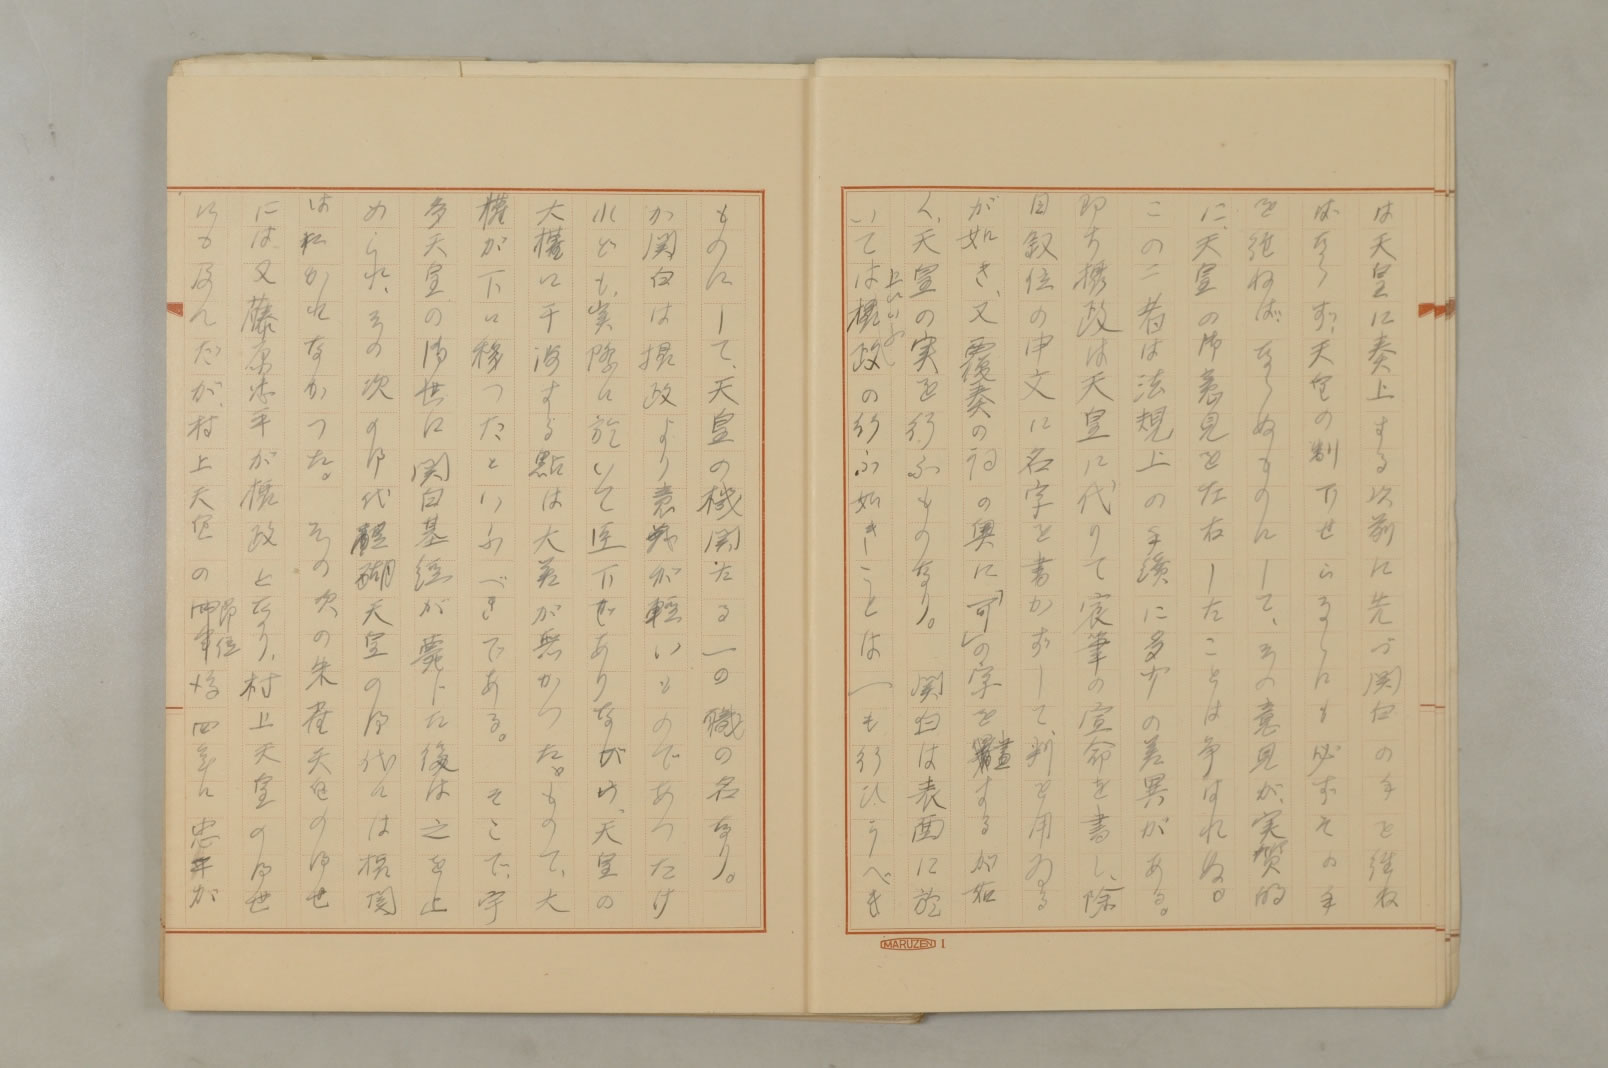 は天皇に奏上する次前に先づ関白の手を経ね
ばならず、天皇の判下せらるゝにも必ずその手
を経ねば、ならぬものにして、その意見が、実質的
に、天皇の御意見を左右したことは争はれぬ。
この二者は法規上の手續に多少の差異がある。
即ち摂政は天皇に代りて宸筆の宣命を書し、除
目叙位の申文に名字を書かずして、判を用ゐる
が如き、又覆奏の詞の奥に「可」の字を畫するが如
く、天皇の実を行ふものなり。 関白は表面に於
いては上にいふ摂政の行ふ如きことは一も行ひうべき
MARUZEN 1
ものにして、天皇の機関たる一の職の名なり。
か関白は摂政より意義が軽いものであつたけ
れども、実際に於いて臣下でありながら、天皇の
大權に干渉する點は大差が無かつた。もので、大
權が下に移つたといふべきである。 そこで、宇
多天皇の御世に関白基経が薨じた後は之を止
められ、その次の御代醍醐天皇の御代には摂関
は私かれなかつた。 その次の朱雀天皇の御世
には又藤原忠平が摂政となり、村上天皇の御世
にも及んだが、村上天皇の即位後四年に忠平が